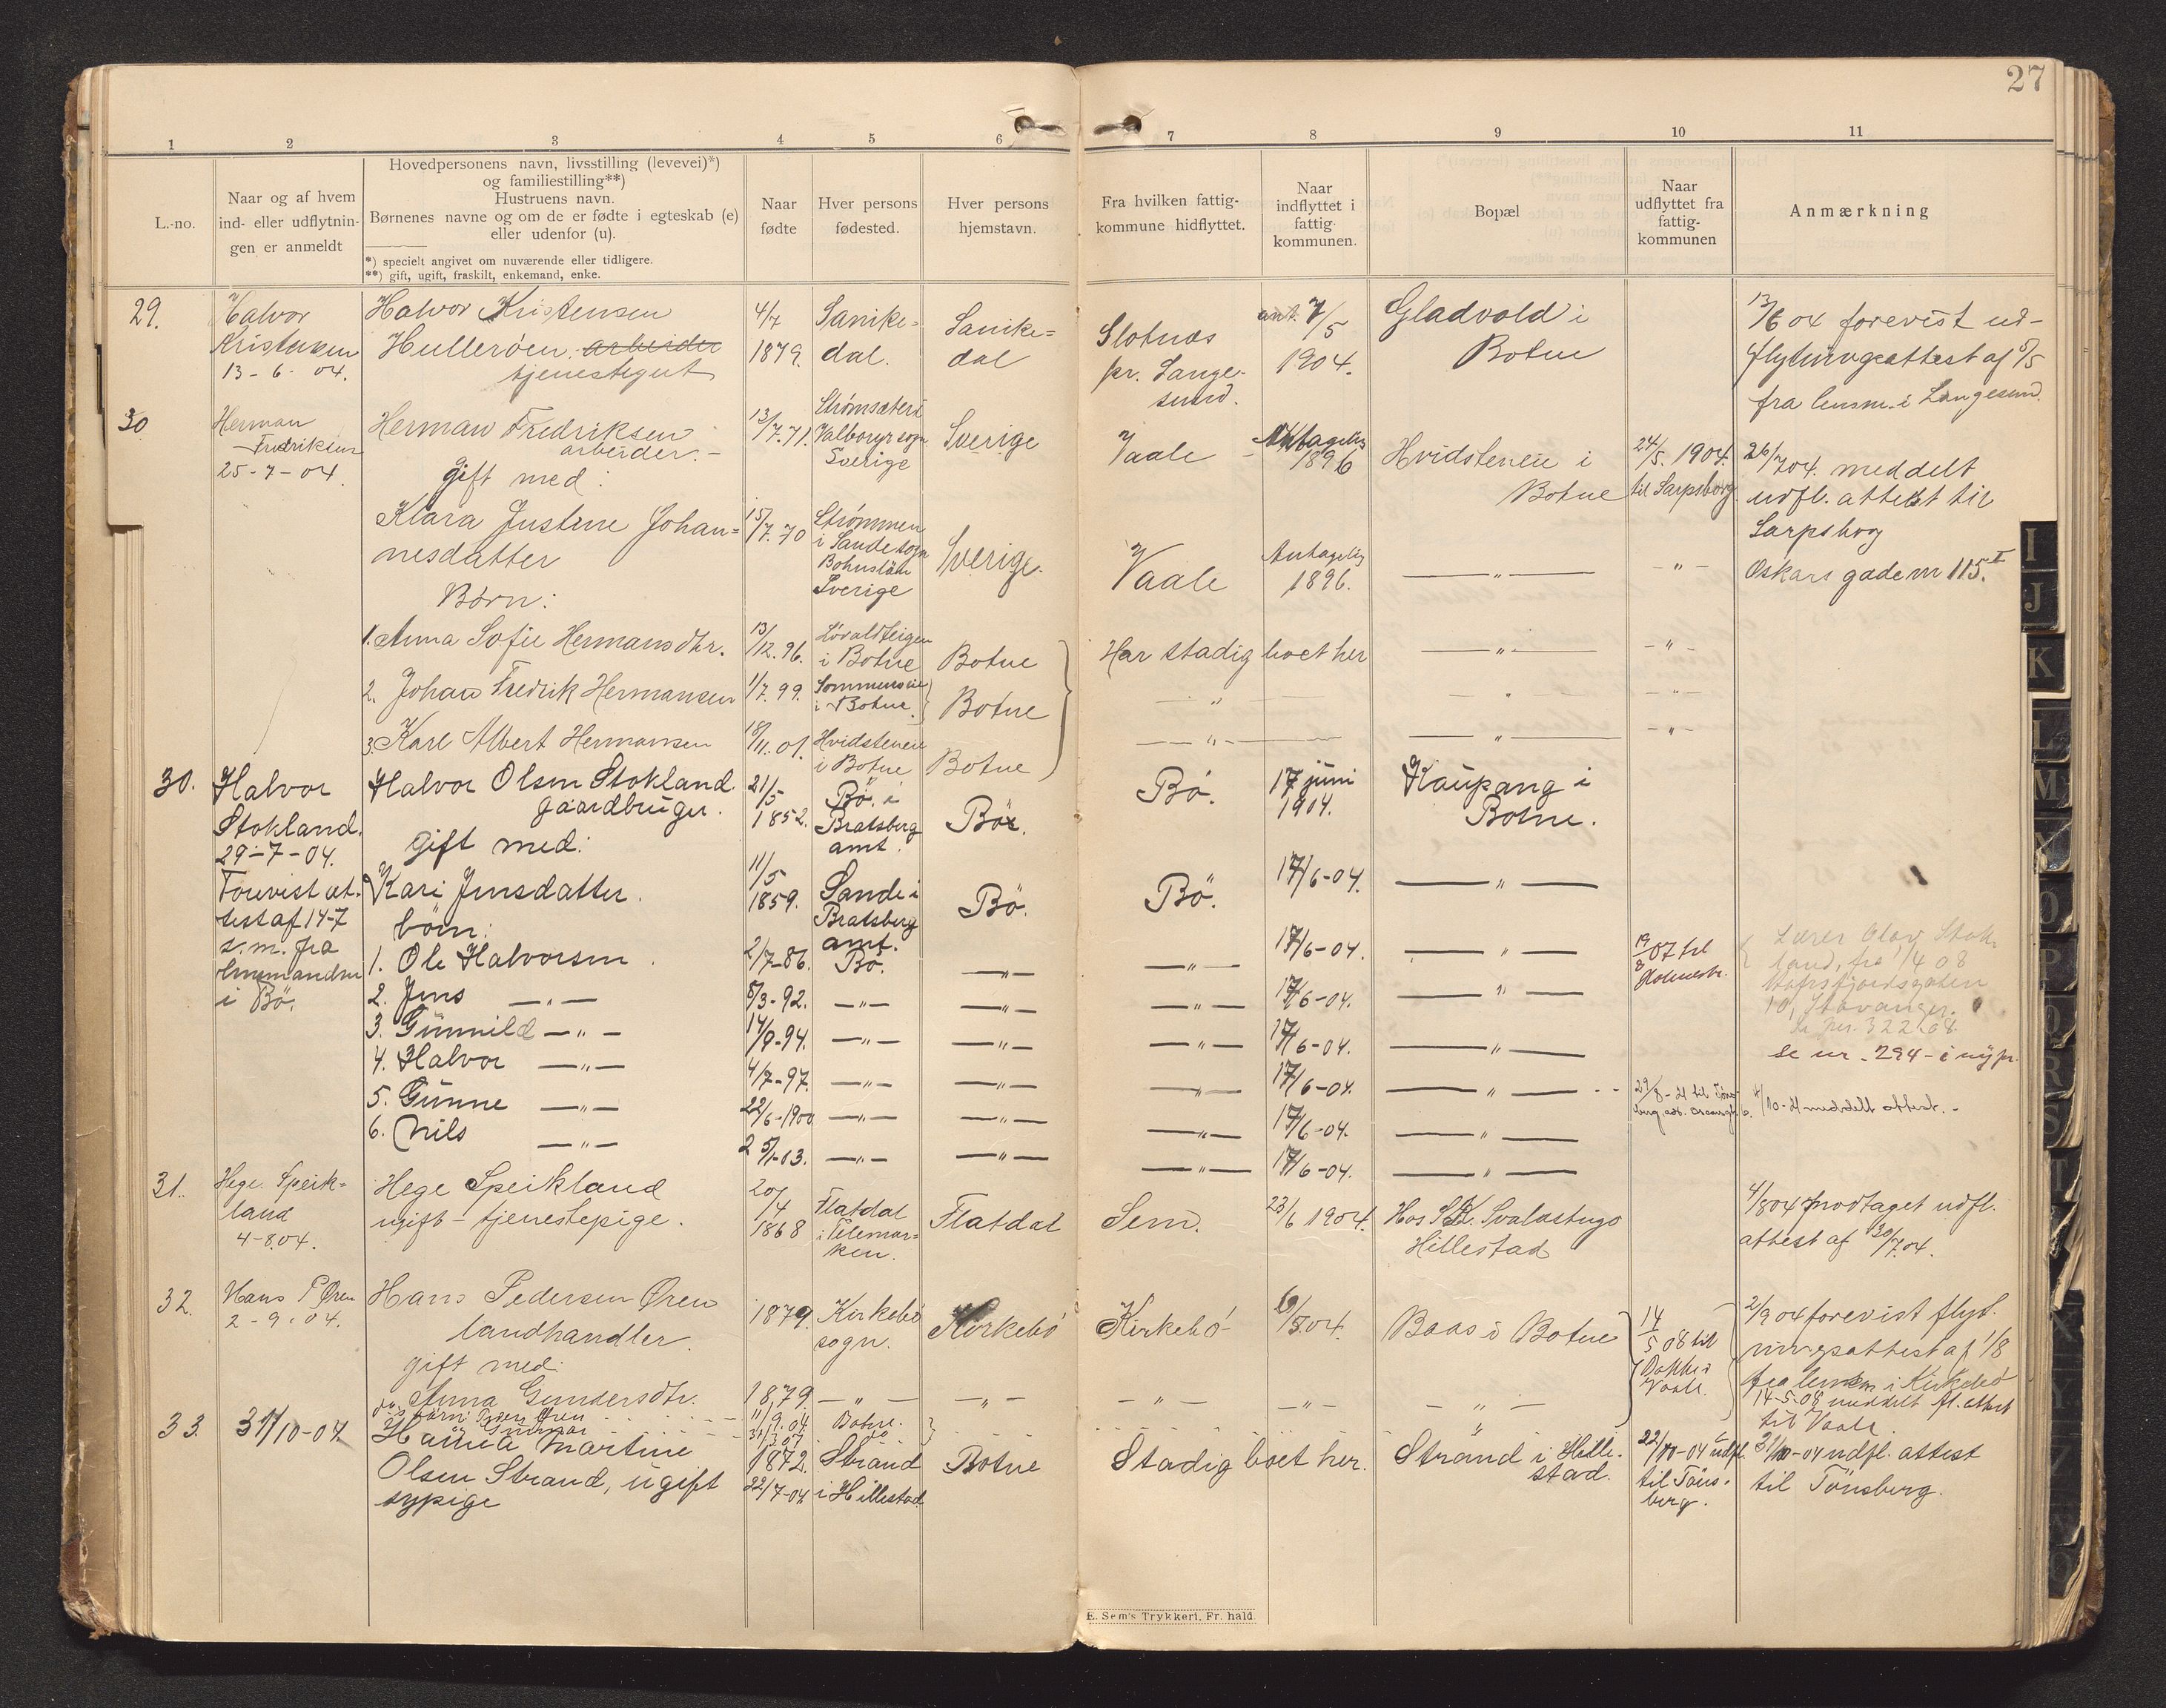 27
1 2 3 4 5 6 7 8 9 10 11
L.-no.
Naar og af hvem
ind- eller udflytnin-
gen er anmeldt
Hovedpersonens navn, livsstilling (levevei)*)
og familiestilling**)
Hustruens navn.
Børnenes navne og om de er fødte i egteskab (e)
eller udenfor (u).
*) specielt angivet om nuværende eller tidligere.
**) gift, ugift, fraskilt, enkemand, enke.
Naar
fødte
Hver persons
fødested.
Hver persons
hjemstavn.
Fra hvilken fattig-
kommune hidflyttet.
Naar
indflyttet i
fattig-
kommunen.
Bopæl
Naar
udflyttet fra
fattig-
kommunen
Anmærkning
29.
Halvor
Kristensen
13-6-04.
Halvor Kristensen
Hullerøen. arbeider
tjenestegut
4/7
1879.
Sanike-
dal.
Sanike=
dal
Slotnæs
pr. Lange-
sund.
ant. 7/5
1904.
Gladvold i
Botne
13/6 04 forevist ud-
flytningsattest af 5/5
fra lensm. i Langesund.
30
Herman
Fredriksen
25-7-04.
Herman Fredriksen
arbeider.-
gift med:
13/7.71.
Strømsæter i
Valboryr sogn
Sverige
Sverige
Vaale
Antagelig
1896
Hvidsteneie i
Botne
24/5. 1904.
til Sarpsborg
26/7 04. meddelt
udfl. attest til
Sarpsborg
Oskars gade nr 115.I
Klara Justine Johan=
nesdatter
Børn:
15/7.70
Strømmen
i Sande sogn
Bohuslän
Sverige
Sverige.
Vaale
Antagelig
1896.
— „ —
- „ -
1. Anna Sofie Hermansdtr.
13/12.96.
Løvaldteigen
i Botne
Botne
Har stadig boet her
— „ —
- „ -
2. Johan Fredrik Hermansen
1/7.99.
Sommerseie
i Botne.
Botne
— „ —
— „ —
- „ -
3. Karl Albert Hermansen
18/11.01.
Hvidsteneie
i Botne
Botne
— „ —
— „ —
- „ -
30.
Halvor
Stokland.
29-7-04.
Forevist at-
test af 14-7
s.m. fra
lensmanden
i Bö.
Halvor Olsen Stokland.
gaardbruger.
gift med:
21/5
1852.
Bö i
Bratsberg
amt.
Bö.
Bö.
17 juni
1904.
Kaupang i
Botne.
Kari Jensdatter.
börn:
11/5
1859.
Sande i
Bratsberg
amt.
Bö.
Bö.
17/6-04.
— „ —
1. Ole Halvorsen.
2/7-86.
Bö.
— „ —
— „ —
17/6-04.
— „ —
19/8 07 til
Holmestr.
Lærer Olav Stok-
land, fra 1/4 08
Hafrsfjordsgaten
10, Stavanger.
se nr. 294 - i ny pr.
2. Jens — „ —
8/3-92.
— „ —
— „ —
— „ —
17/6-04.
— „ —
3. Gunnild — „ —
14/9-94.
— „ —
— „ —
— „ —
17/6-04.
— „ —
4. Halvor — „ —
4/7-97.
— „ —
— „ —
— „ —
17/6-04.
— „ —
29/8-21 til Töns-
4/10-21 meddelt attest.-
5. Gunne — „ —
22/6-1900
— „ —
— „ —
— „ —
17/6-04.
— „ —
6. Nils — „ —
25/1-03.
— „ —
— „ —
— „ —
17/6-04.
— „ —
31.
Hege Speik-
land
4-8.04.
Hege Speikland
ugift - tjenestepige.
20/4
1868
Flatdal
i Telemar=
ken.
Flatdal
Sem.
23/6 1904.
Hos S.K. Svalastugo
Hillestad
4/8 04 modtaget udfl.
attest af 30/7.04.
32.
Hans P Øren
2-9-04.
Hans Pedersen Øren
landhandler.
gift med:
1879.
Kirkebö
sogn.
Kirkebö
Kirkebö
/8.04.
Baas i Botne
14/5 08 til
Vaale.
2/9 04 forevist flyt-
ningsattest af 1/8
fra lensm i Kirkebö
14-5-08 meddelt fl. attest
til Vaale.
Anna Gundersdtr.
1879.
— „ —
- „ -
- „ -
- „ -
- „ -
11/9.04
Botne.
33.
31/10-04
Hanna Martine
Olsen Strand, ugift
sypige
1872.
22/7-04
Strand
i Hillestad
Botne
Stadig boet her.
Strand i Hille-
stad.
22/10-04 udfl.
til Töns-
berg.
31/10-04 udfl. attest
til Tönsberg.
E. Sem's Trykkeri, Fr. hald.
I
J
K
L
M
O
P
Q
R
S
T
X
Y
Z